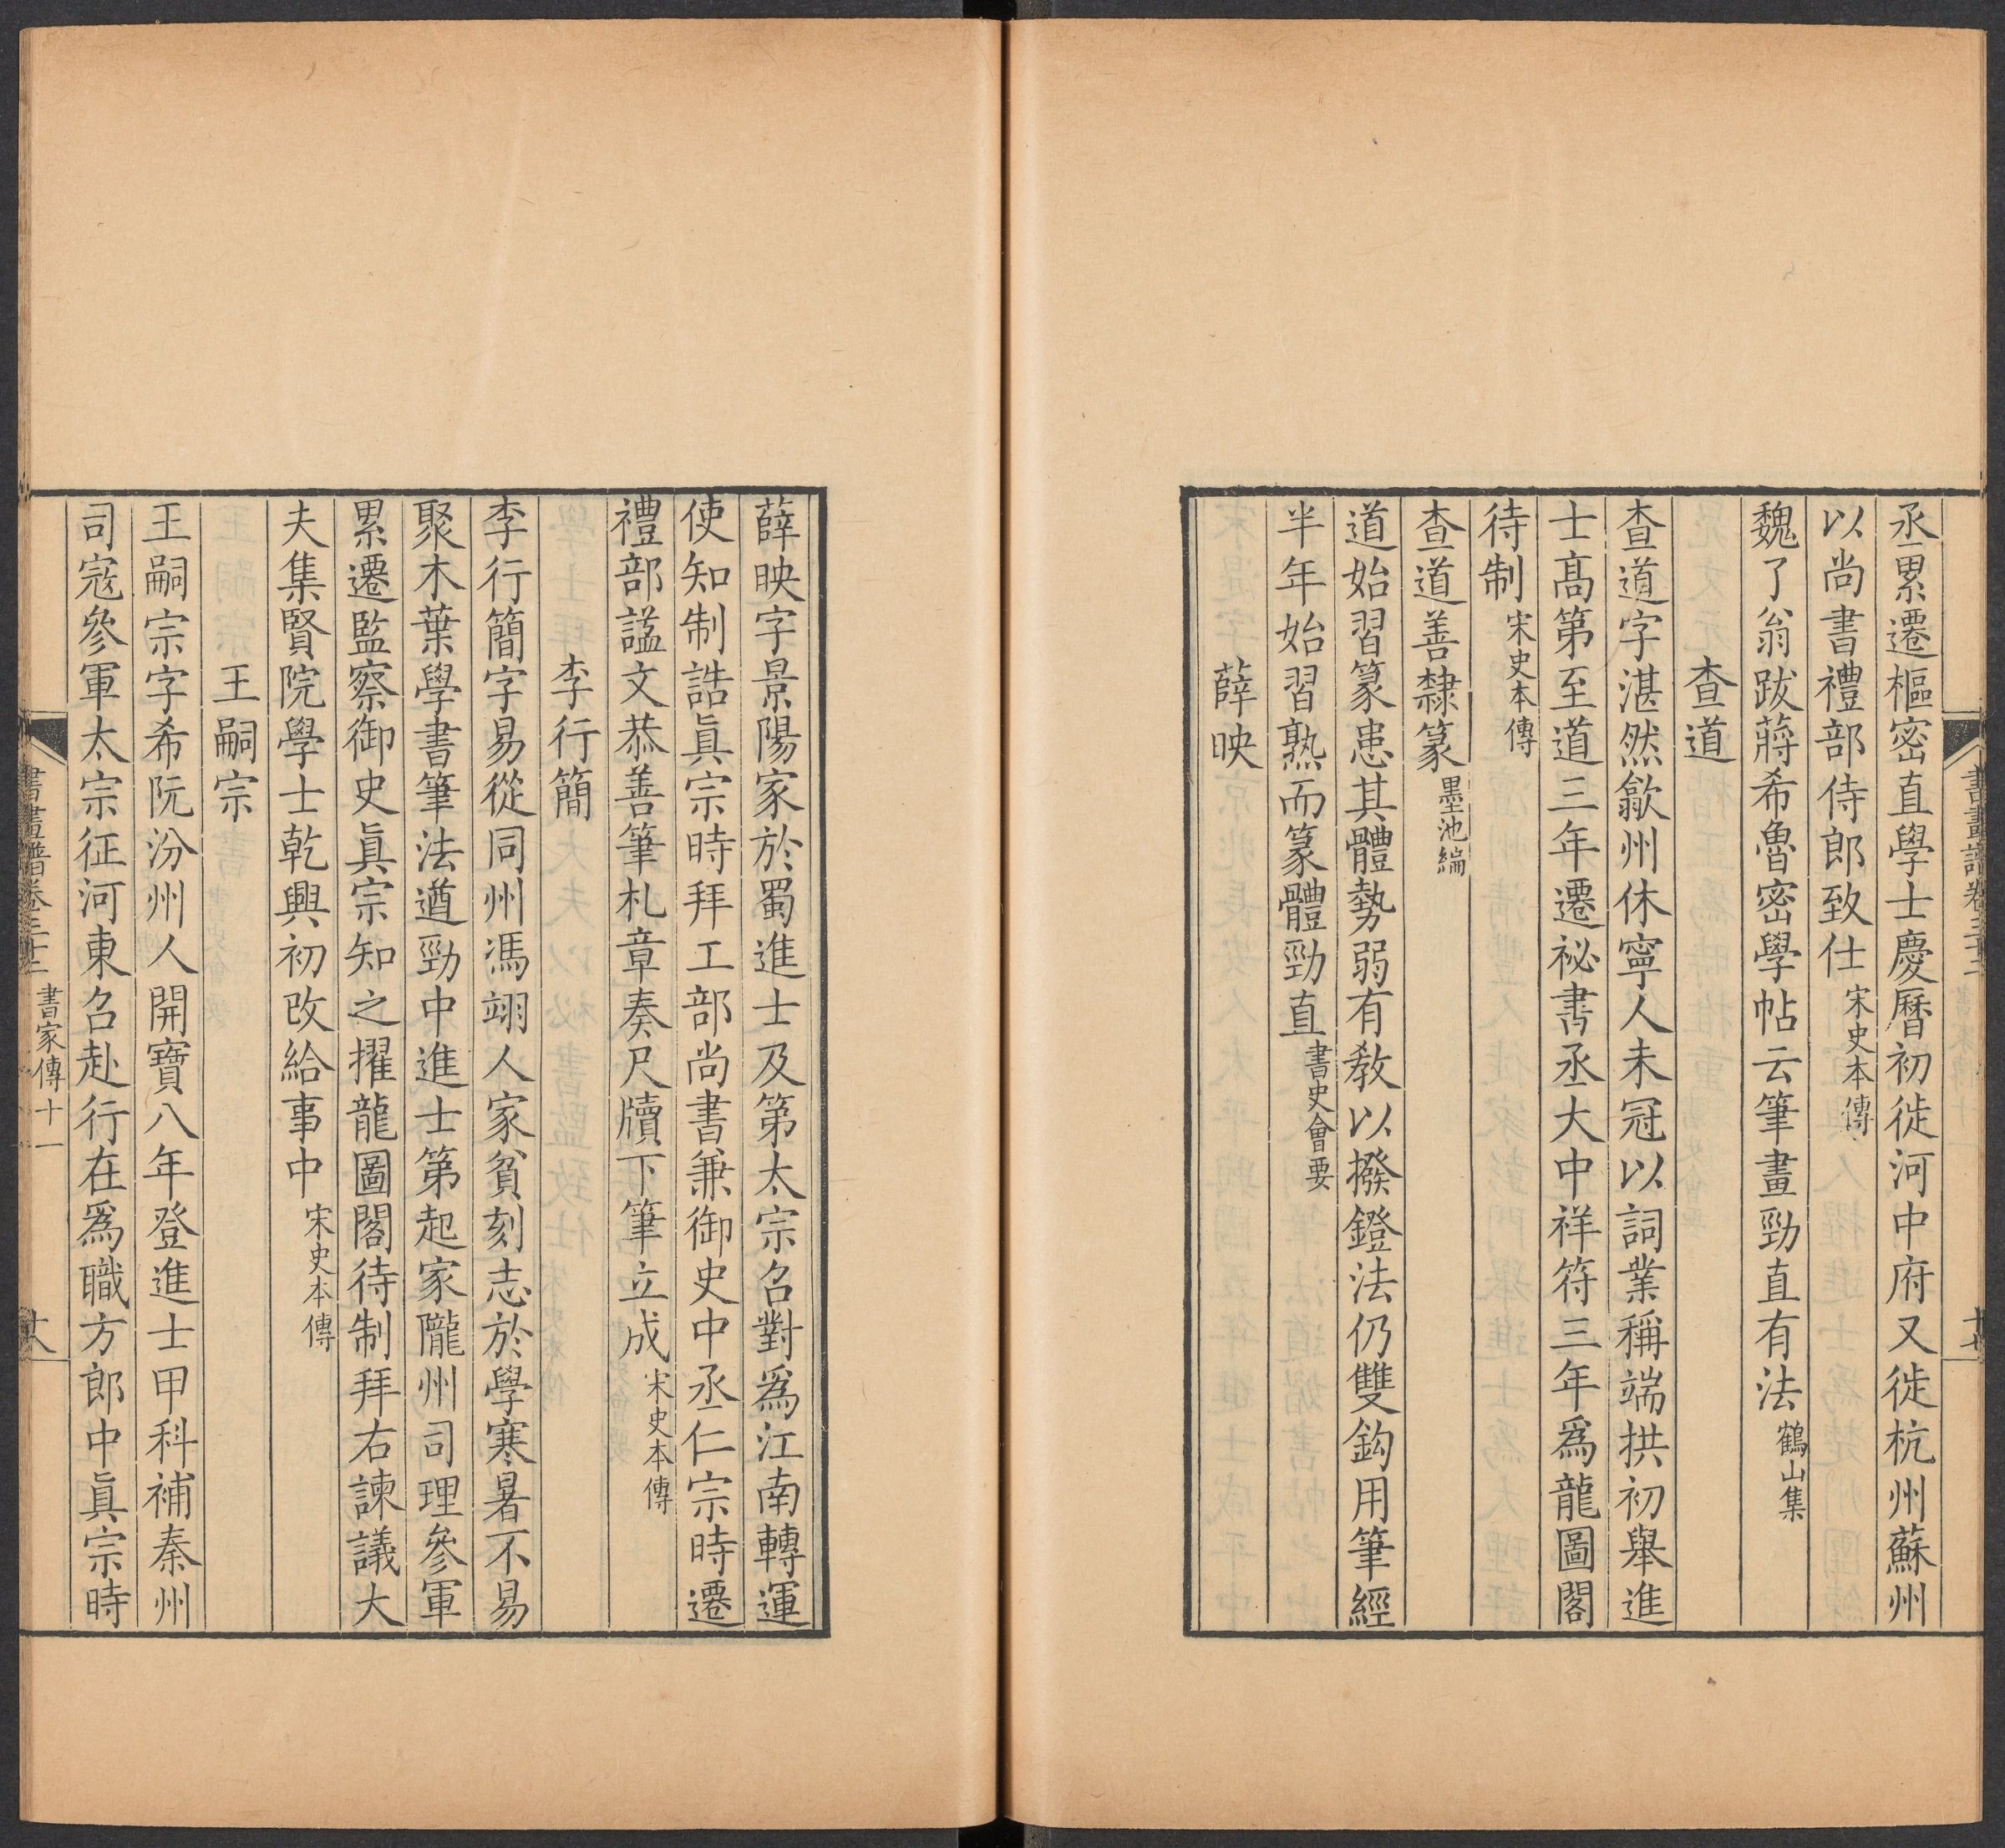 丞累遷樞密直學士慶曆初徙河中府又徙杭州蘇州
以尚書禮部侍郎致仕宋史本傳
魏了翁跋蔣希魯密學帖云筆畫勁直有法鶴山集
查道
查道字湛然歙州休寧人未冠以詞業稱端拱初舉進
士高第至道三年遷祕書丞大中祥符三年爲龍圖閣
待制宋史本傳
查道善隸篆墨池編
道始習篆患其體勢弱有敎以撥鐙法仍雙鈎用筆經
半年始習熟而篆體勁直書史會要
薛映
薛映字景陽家於蜀進士及第太宗召對爲江南轉運
使知制誥眞宗時拜工部尚書兼御史中丞仁宗時遷
禮部諡文恭善筆札章奏尺牘下筆立成宋史本傳
李行簡
李行簡字易從同州馮翊人家貧刻志於學寒暑不易
聚木葉學書筆法遒勁中進士第起家隴州司理參軍
累遷監察御史眞宗知之擢龍圖閣待制拜右諫議大
夫集賢院學士乾興初改給事中宋史本傳
王嗣宗
王嗣宗字希阮汾州人開寶八年登進士甲科補秦州
司寇參軍太宗征河東召赴行在爲職方郎中眞宗時
書畫譜卷三十二 書家傳十一 十八